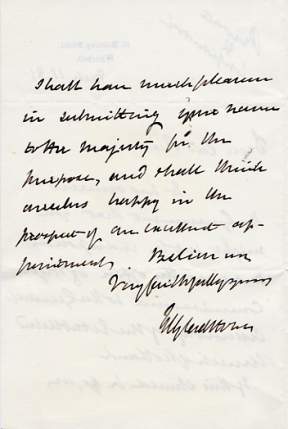 I shall have much pleasure
in submitting your name
to Her Majesty for the
purpose, and shall think
ourselves happy in the
prospect of an excellent ap-
pointment. Believe me
Very faithfully yours
WEGladstone